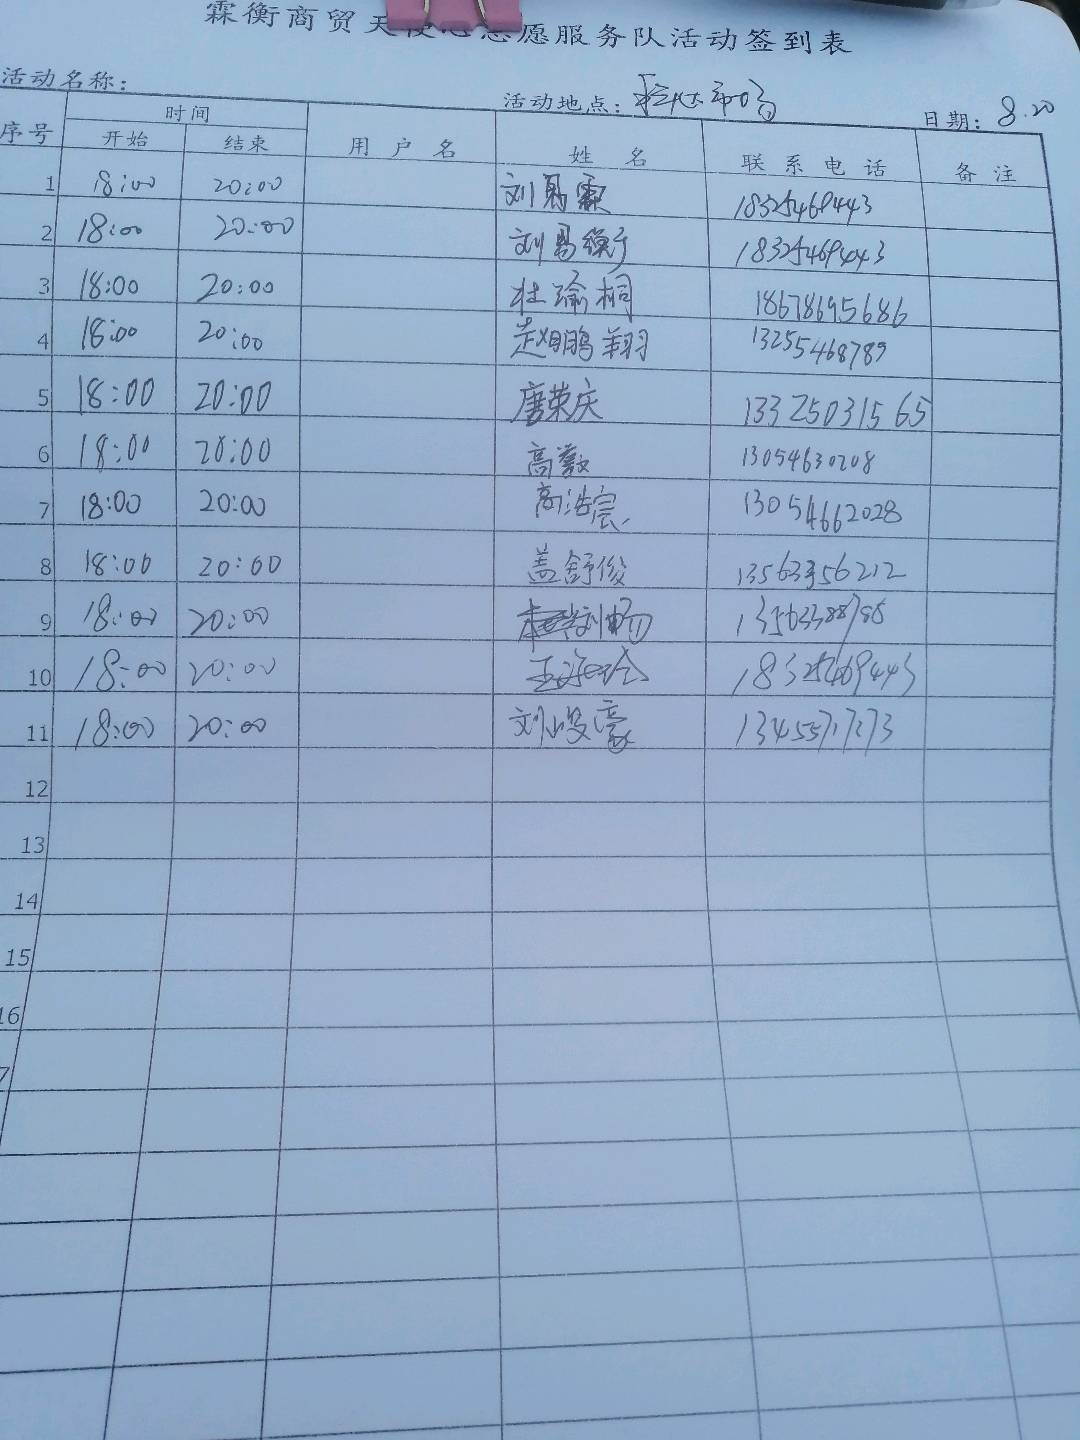 霖衡商贸天使心志愿服务队活动签到表
活动名称： 活动地点： 日期：8.20
序号 时间 用户名 姓名 联系电话 备注
开始 结束
1 18:00 20:00 刘易霖 18325469443
2 18:00 20:00 刘易衡 18325469443
3 18:00 20:00 杜瑜桐 18678695686
4 18:00 20:00 赵鹏翔 13255468789
5 18:00 20:00 唐荣庆 13325031565
6 18:00 20:00 高 13054630208
7 18:00 20:00 高浩宸 13054662028
8 18:00 20:00 盖舒俊 13563356212
9 18:00 20:00 刘畅
10 18:00 20:00 18325469443
11 18:00 20:00 刘峻豪
12
13
14
15
16
7